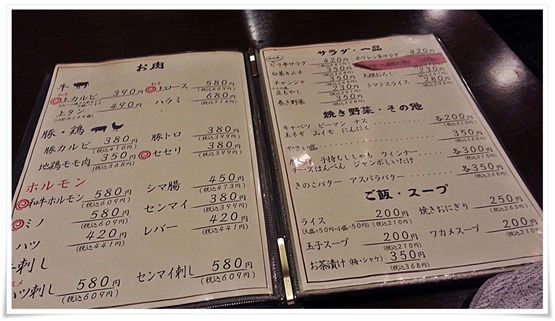 お肉
牛
上カルビ 390円
上ロース 580円
(税込609円)
上タン 490円
ハラミ 680円
(税込714円)
豚・鶏
豚カルビ 380円
豚トロ 380円
(税込399円)
地鶏モモ肉 350円
(税込368円)
セセリ 380円
(税込399円)
ホルモン
和牛ホルモン 580円
(税込609円)
シマ腸 450円
(税込473円)
ミノ 580円
(税込609円)
センマイ 380円
(税込399円)
ハツ 420円
(税込441円)
レバー 420円
(税込441円)
刺し
ハツ刺し 580円
(税込609円)
センマイ刺し 580円
(税込609円)
サラダ・一品
ピリ辛サラダ 420円
白菜キムチ
チャンジャ 350円
トマトスライス 280円
巻き野菜 350円
焼き野菜・その他
キャベツ ピーマン ナス
玉ネギ 山イモ にんにく 各200円
(税込210円)
やさい盛 350円
子持ちししゃも ウィンナー
チーズはんぺん ジャンボしいたけ 各300円
きのこバター アスパラバター 各350円
(税込368円)
ご飯・スープ
ライス 200円
(税込210円)
焼きおにぎり 250円
(税込263円)
玉子スープ 200円
(税込210円)
ワカメスープ 200円
(税込210円)
お茶漬け (梅・シャケ) 350円
(税込368円)